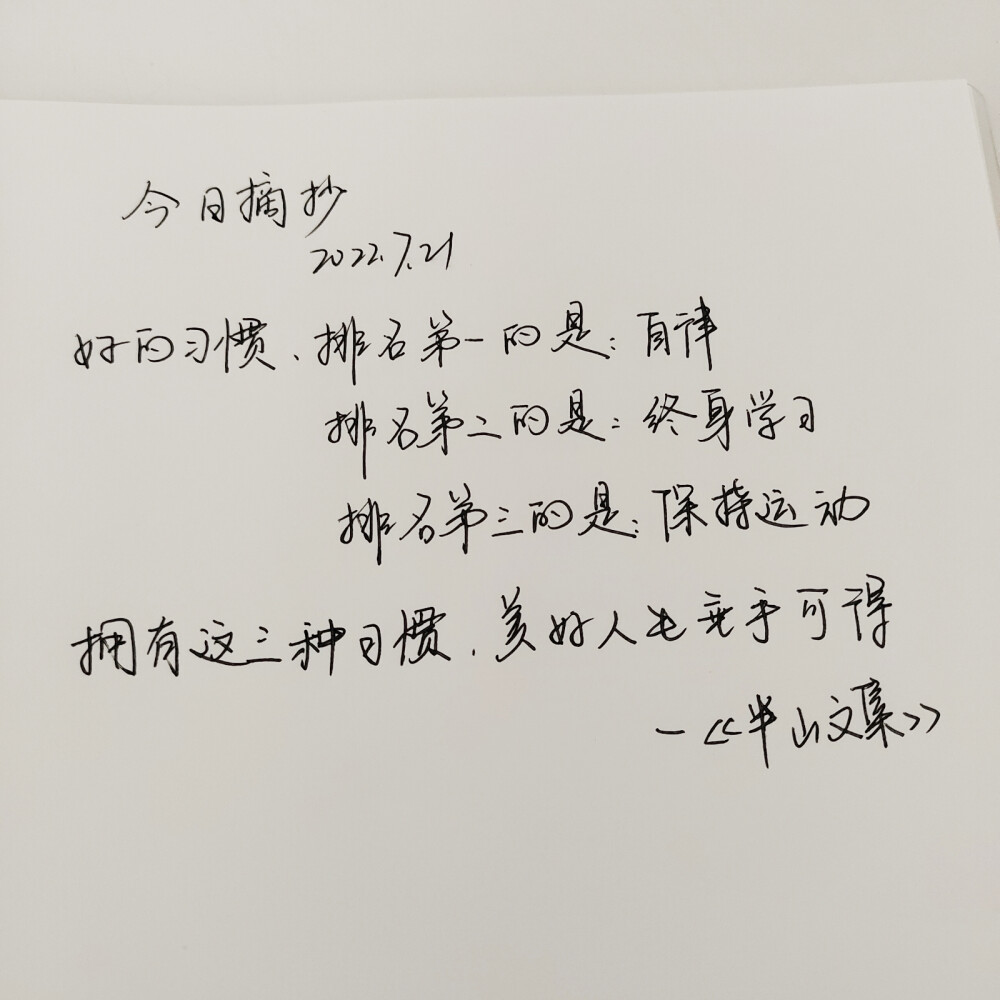 今日摘抄
2022.7.21
好的习惯、排名第一的是：自律
排名第二的是：终身学习
排名第三的是：保持运动
拥有这三种习惯，美好人生垂手可得
—《半山文集》